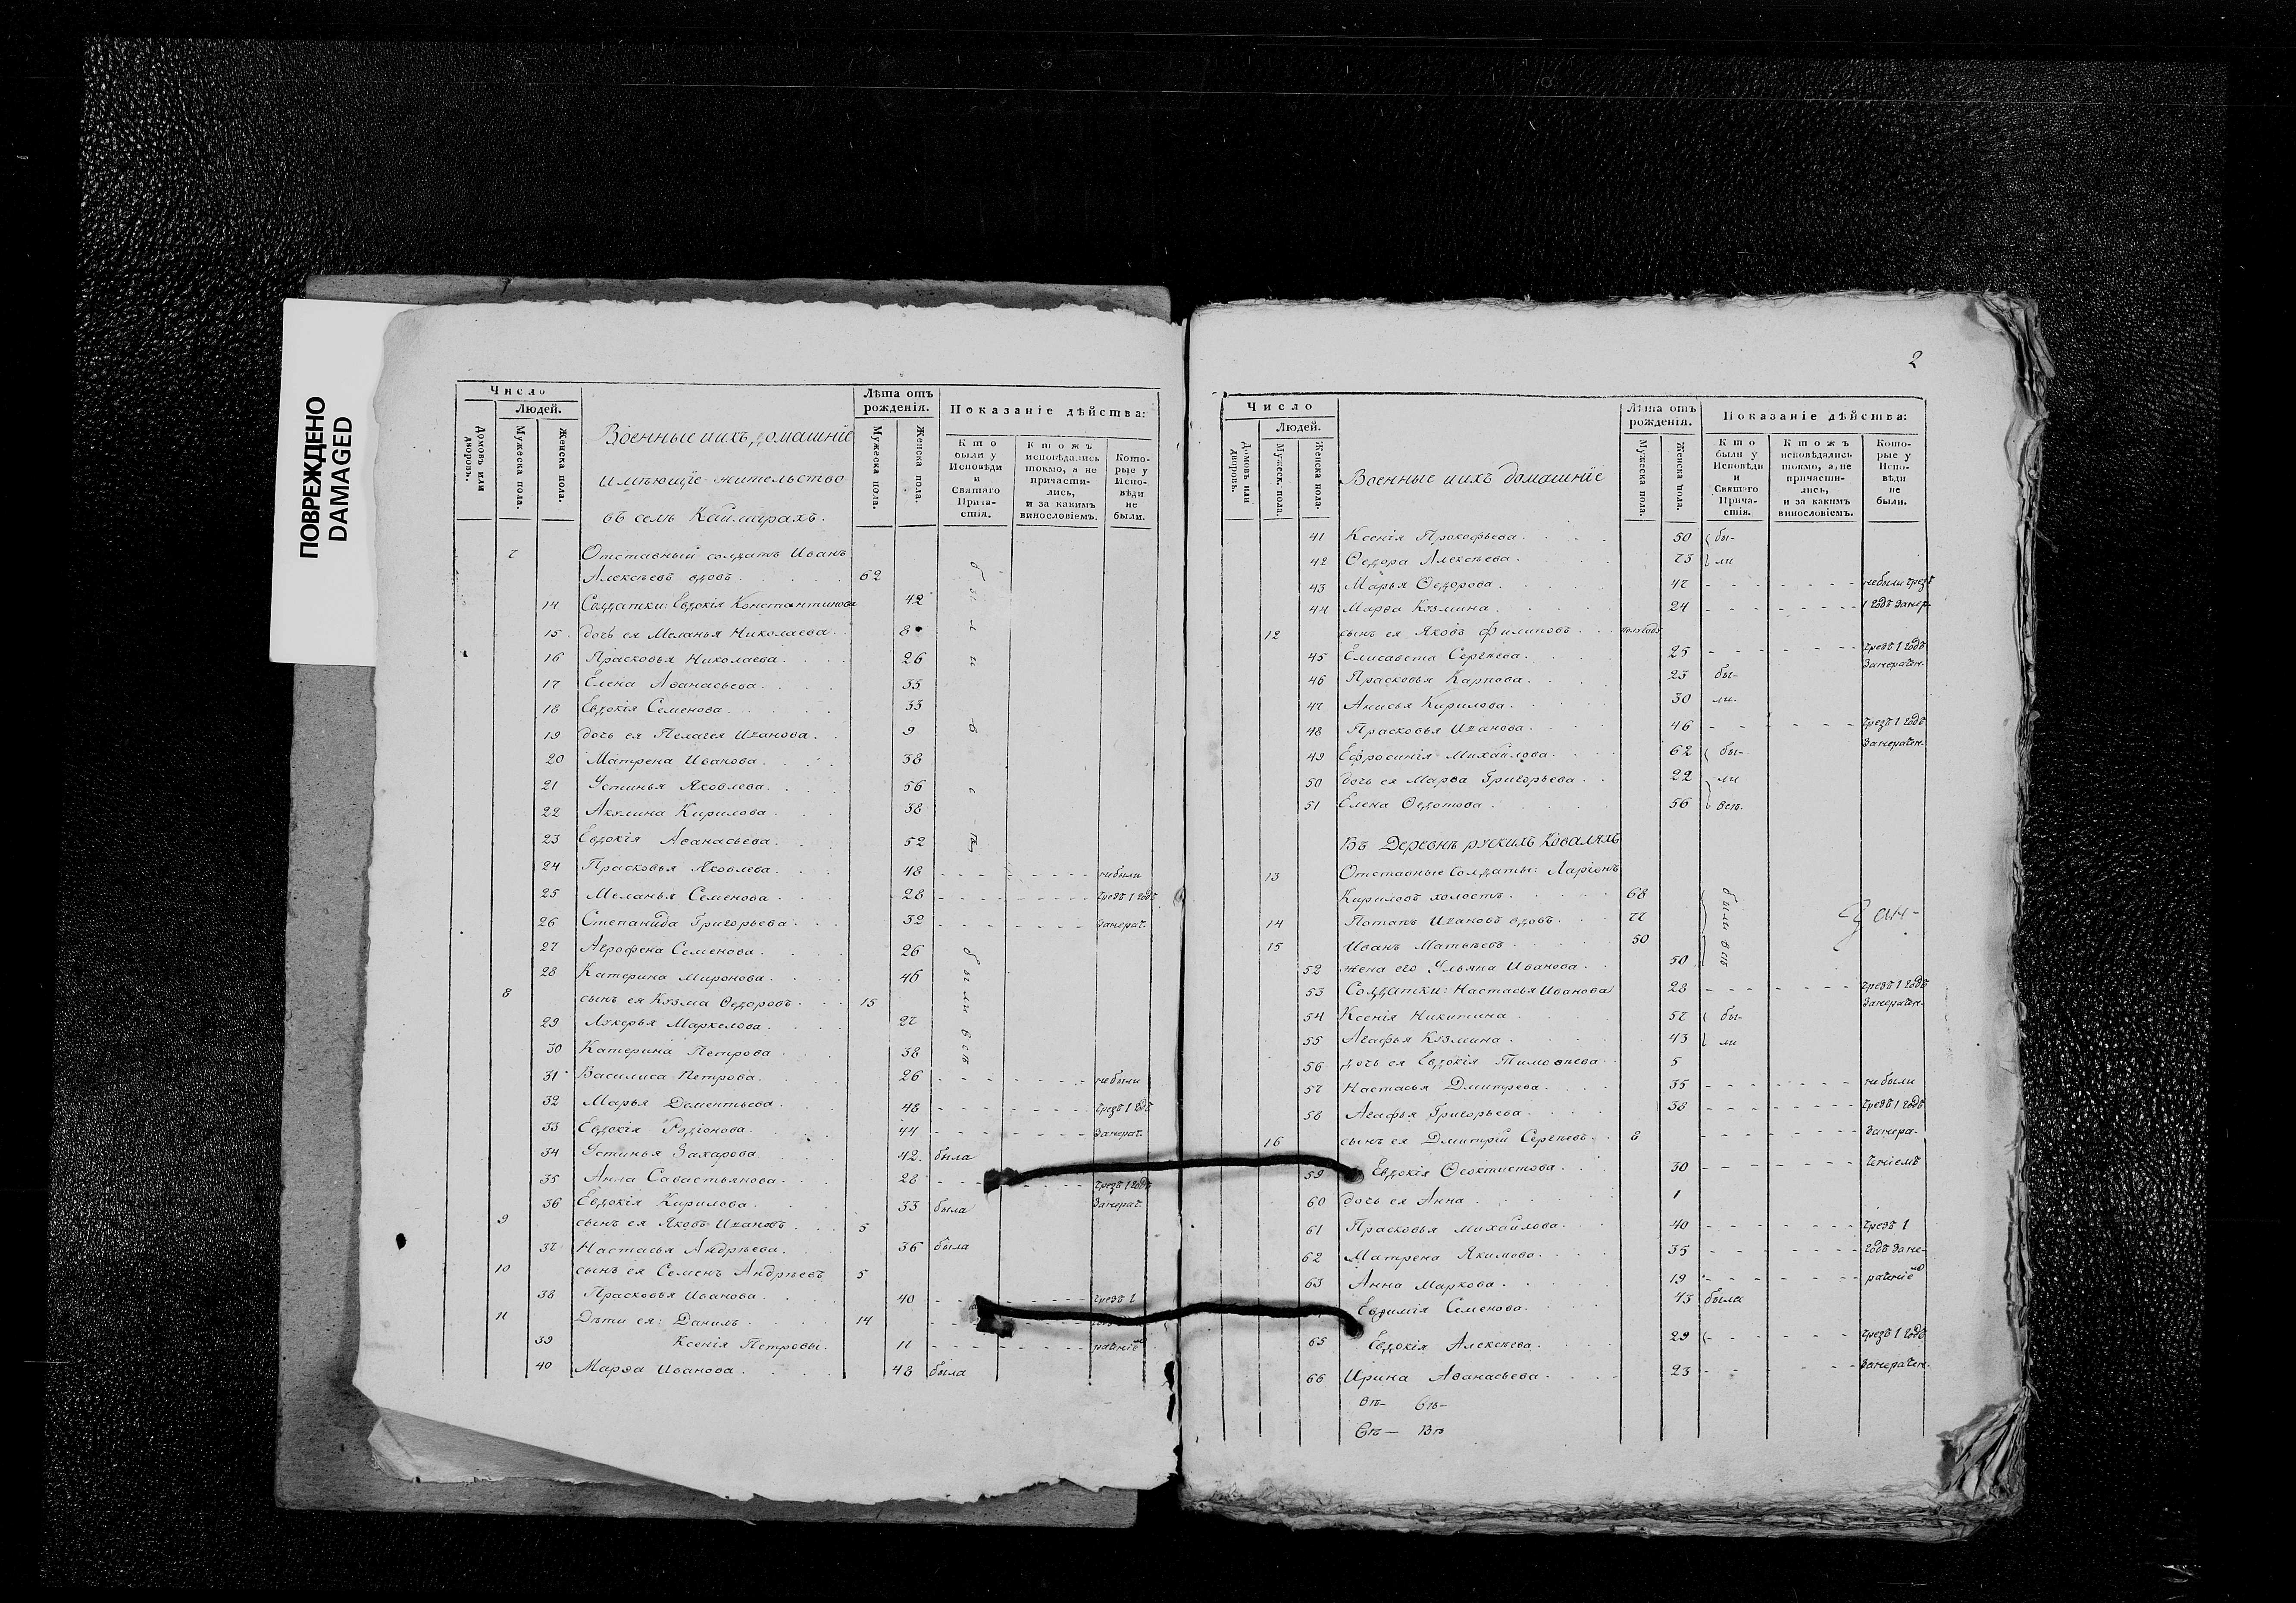 ПОВРЕЖДЕНО
DAMAGED
Число
Людей.
Домовъ или дворовъ.
Мужеска пола.
Женска пола.
Военные и ихъ домашніе
имѣющіе жительство
въ селѣ Каймарахъ.
Лѣта отъ рожденія.
Мужеска пола.
Женска пола.
Показаніе дѣйства:
Кто были у Исповѣди и Святаго Прича-стія.
Ктожъ исповѣдались токмо, а не причасти-лись, и за какимъ винословіемъ.
Кото-рые у Испо-вѣди не были.
7 Отставный солдатъ Иванъ
Алексѣевъ вдовъ 62
14 Солдатки: Евдокія Константинова 42
15 дочь ея Меланья Николаева 8
16 Прасковья Николаева 26
17 Елена Аѳанасьева 35
18 Евдокія Семенова 33
19 дочь ея Пелагея Иванова 9
20 Матрена Иванова 38
21 Устинья Яковлева 56
22 Акулина Кирилова 38
23 Евдокія Аѳанасьева 52
24 Прасковья Яковлева 48 не были
25 Меланья Семенова 28 чрезъ 1 годъ
26 Степанида Григорьева 32 занерач.
27 Агрофена Семенова 26
28 Катерина Миронова 46
8 сынъ ея Кузма Ѳедоровъ 15
29 Лукерья Маркелова 27
30 Катерина Петрова 38
были всѣ
31 Василиса Петрова 26 не были
32 Марья Дементьева 48 чрезъ 1 годъ
33 Евдокія Родіонова 44 занерач.
34 Устинья Захарова 42 была
35 Анна Савастьянова 28 чрезъ 1 годъ
36 Евдокія Кирилова 33 была занерач.
9 сынъ ея Яковъ Ивановъ 5
37 Настасья Андрѣева 36 была
10 сынъ ея Семенъ Андрѣевъ 5
38 Прасковья Иванова 40 чрезъ 1
11 Дѣти ея: Данилъ 14
39 Ксенія Петровы 11 раченіе
40 Марѳа Иванова 48 была
2
Число
Людей.
Домовъ или дворовъ.
Мужеск. пола.
Женска пола.
Военные и ихъ домашніе
Лѣта отъ рожденія.
Мужеска пола.
Женска пола.
Показаніе дѣйства:
Кто были у Исповѣди и Святаго Прича-стія.
Ктожъ исповѣдались токмо, а не причасти-лись, и за какимъ винословіемъ.
Кото-рые у Испо-вѣди не были.
41 Ксенія Прокофьева 50 бы-
42 Ѳедора Алексѣева 73 ли
43 Марья Ѳедорова 47 не были чрезъ
44 Марѳа Кузмина 24 1 годъ занер-
12 сынъ ея Яковъ Филиповъ полъгода
45 Елисавета Сергѣева 25 чрезъ 1 годъ
занерачен.
46 Прасковья Карпова 23 бы-
47 Анисья Кирилова 30 ли.
48 Прасковья Иванова 46 чрезъ 1 годъ
занерачен.
49 Ефросинія Михайлова 62 бы-
50 дочь ея Марѳа Григорьева 22 ли
51 Елена Ѳедотова 56 всѣ.
Въ Деревнѣ рускихъ Коваляхъ
13 Отставные Солдаты: Ларіонъ
Кириловъ холостъ 68
14 Потапъ Ивановъ вдовъ 77
15 Иванъ Матвѣевъ 50
52 жена его Ульяна Иванова 50
были всѣ
53 Солдатки: Настасья Иванова 28 чрезъ 1 годъ
занерачен.
54 Ксенія Никитина 57 бы-
55 Агафья Кузмина 43 ли
56 дочь ея Евдокія Тимоѳеева 5
57 Настасья Дмитрева 35 не были
58 Агафья Григорьева 38 чрезъ 1 годъ
16 сынъ ея Дмитрій Сергѣевъ 8 занера-
59 Евдокія Ѳеоктистова 30 ченіемъ
60 дочь ея Анна 1
61 Прасковья Михайлова 40 чрезъ 1
62 Матрена Якимова 35 годъ зане-
63 Анна Маркова 19 раченіе
Евдимія Семенова 43 была
65 Евдокія Алексѣева 29 чрезъ 1 годъ
66 Ирина Аѳанасьева 23 занерачен.